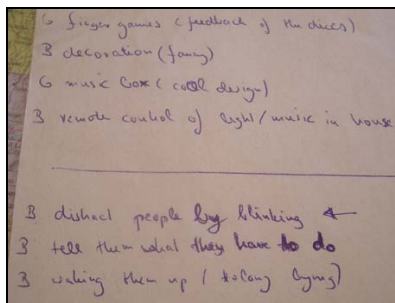 G finger games (feedback of the dices)
B decoration (fancy)
G music box (cool design)
B remote control of light/music in house
B distract people by blinking ←
B tell them what they have to do
B waking them up ( to long lying)